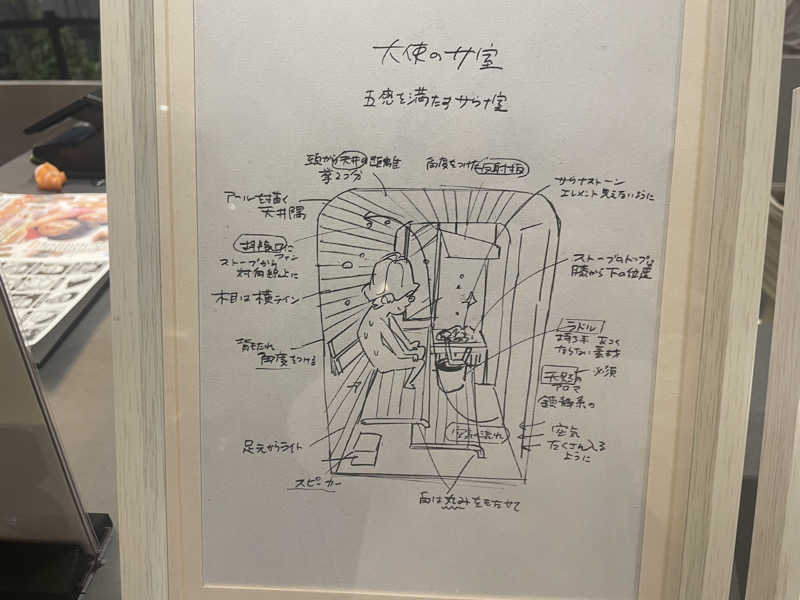 大使のサ室
五感を満たすサウナ室
頭から天井の距離
拳2つ分
角度をつけた反射板
サウナストーン
エレメント見えないように
アールを描く
天井隅
ファン
ストーブから
対角線上に
ストーブのトップは
膝から下の位置
木目は横ライン
ラドル
持ち手 あつく
ならない素材
背もたれ
角度をつける
必須
天然の
アロマ
鎮静系の
空気の流れ
空気
たくさん入る
ように
足元からライト
スピーカー
角は丸みをもたせて